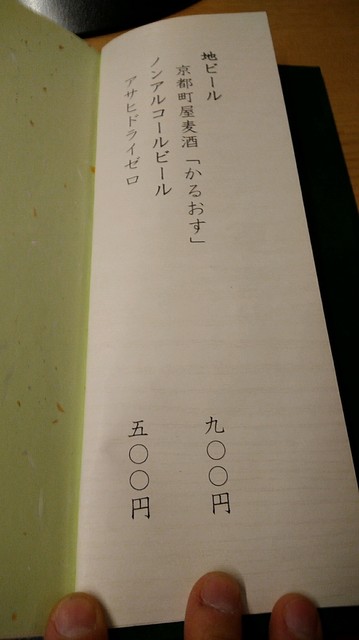 地ビール
京都町屋麦酒「かるおす」
九〇〇円
ノンアルコールビール
アサヒドライゼロ
五〇〇円